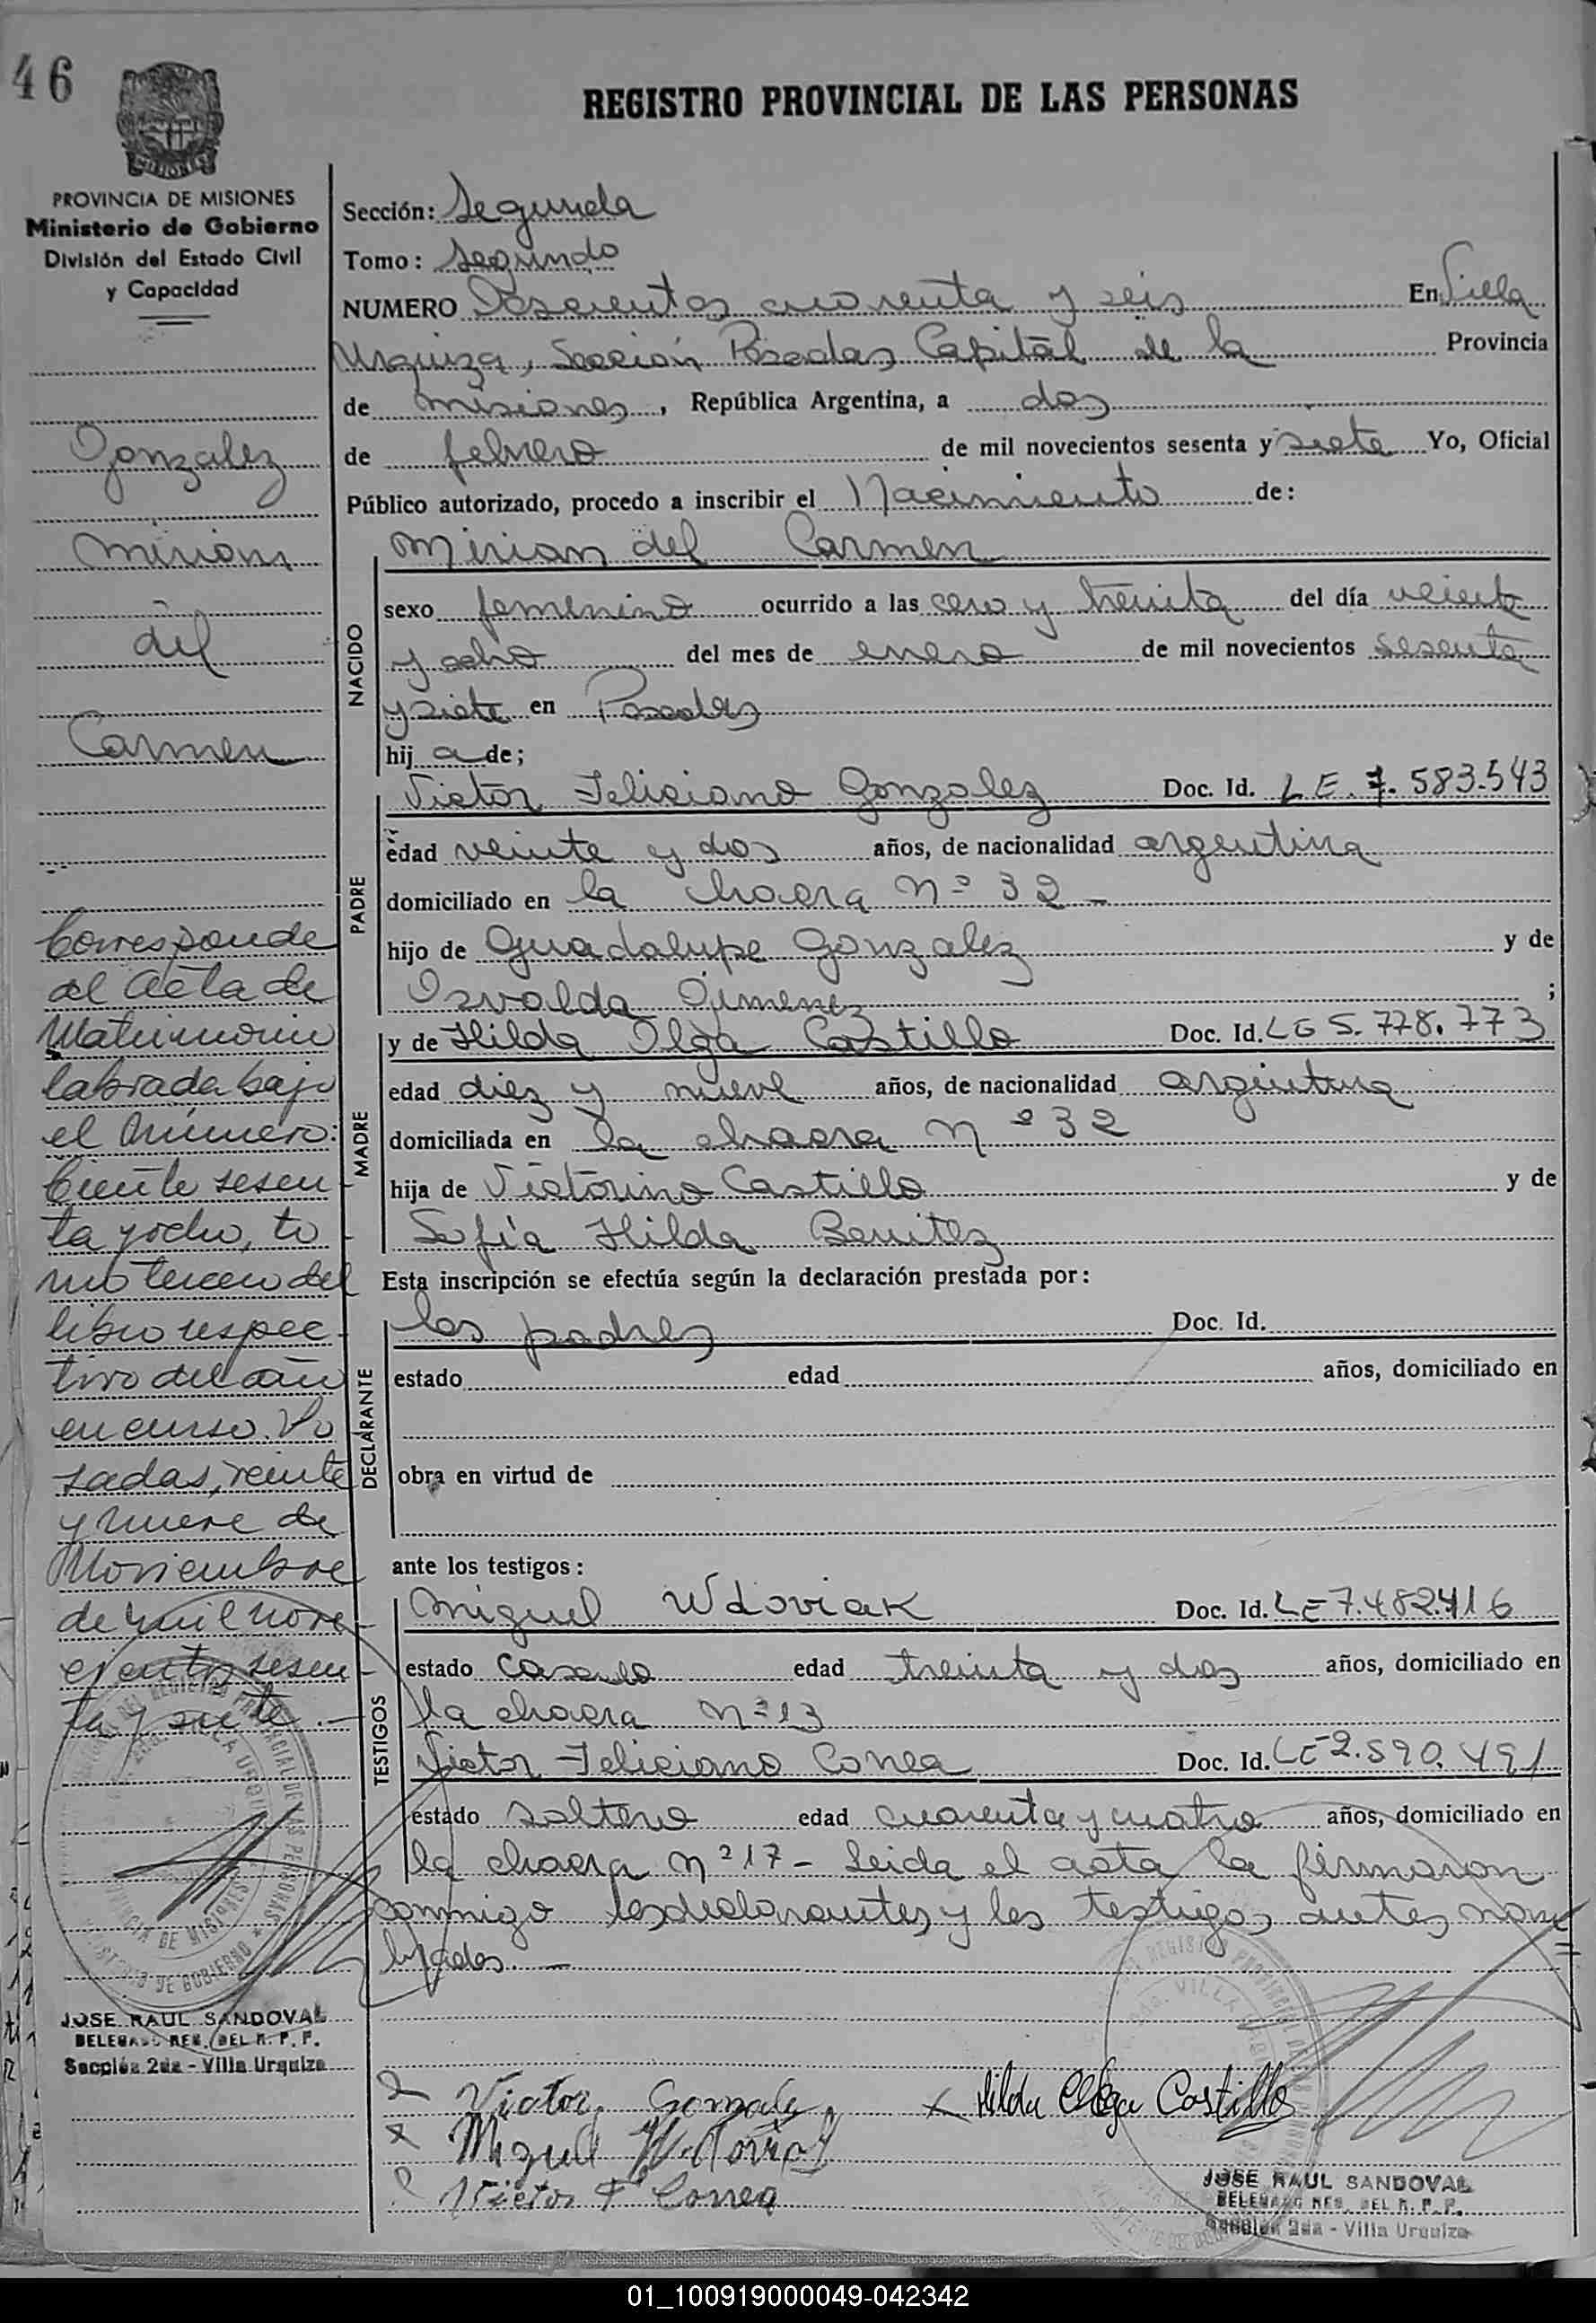 46
REGISTRO PROVINCIAL DE LAS PERSONAS
PROVINCIA DE MISIONES
Ministerio de Gobierno
División del Estado Civil
y Capacidad
Gonzalez
Mirian
del
Carmen
Corresponde
al Acta de
Matrimonio
labrada bajo
el número:
Ciento sesen
ta y ocho, to
mo tercero del
libro respec
tivo del año
en curso. Po
sadas, veinte
y nueve de
Noviembre
de mil nove
cientos sesen
ta y siete.-
JOSE RAUL SANDOVAL
DELEGADO RES. DEL R. P. P.
Sección 2da - Villa Urquiza
Sección: Segunda
Tomo: Segundo
NUMERO Doscientos cuarenta y seis En Villa
Urquiza, Sección Posadas Capital de la Provincia
de Misiones, República Argentina, a dos
de febrero de mil novecientos sesenta y siete Yo, Oficial
Público autorizado, procedo a inscribir el Nacimiento de:
NACIDO
Mirian del Carmen
sexo femenino ocurrido a las cero y treinta del día veinte
y ocho del mes de enero de mil novecientos sesenta
y siete en Posadas
hij a de;
PADRE
Victor Feliciano Gonzalez Doc. Id. LE. 7.583.543
edad veinte y dos años, de nacionalidad argentina
domiciliado en la chacra Nº 32 -
hijo de Guadalupe Gonzalez y de
Osvalda Gimenez ;
MADRE
y de Hilda Olga Castillo Doc. Id. LC 5.778.773
edad diez y nueve años, de nacionalidad argentina
domiciliada en la chacra Nº 32
hija de Victorino Castillo y de
Sofía Hilda Benitez
Esta inscripción se efectúa según la declaración prestada por:
DECLARANTE
los padres Doc. Id.
estado edad años, domiciliado en
obra en virtud de
ante los testigos:
TESTIGOS
Miguel Wdoviak Doc. Id. LE 7.482.416
estado casado edad treinta y dos años, domiciliado en
la chacra Nº 13
Victor Feliciano Correa Doc. Id. LE 2.590.491
estado soltero edad cuarenta y cuatro años, domiciliado en
la chacra Nº 17 - Leida el acta la firmaron
conmigo los declarantes y los testigos antes nom=
brados. -
Victor Gonzalez
Hilda Olga Castillo
Miguel
Victor F Correa
JOSE RAUL SANDOVAL
DELEGADO RES. DEL R. P. P.
Sección 2da - Villa Urquiza
01_100919000049-042342